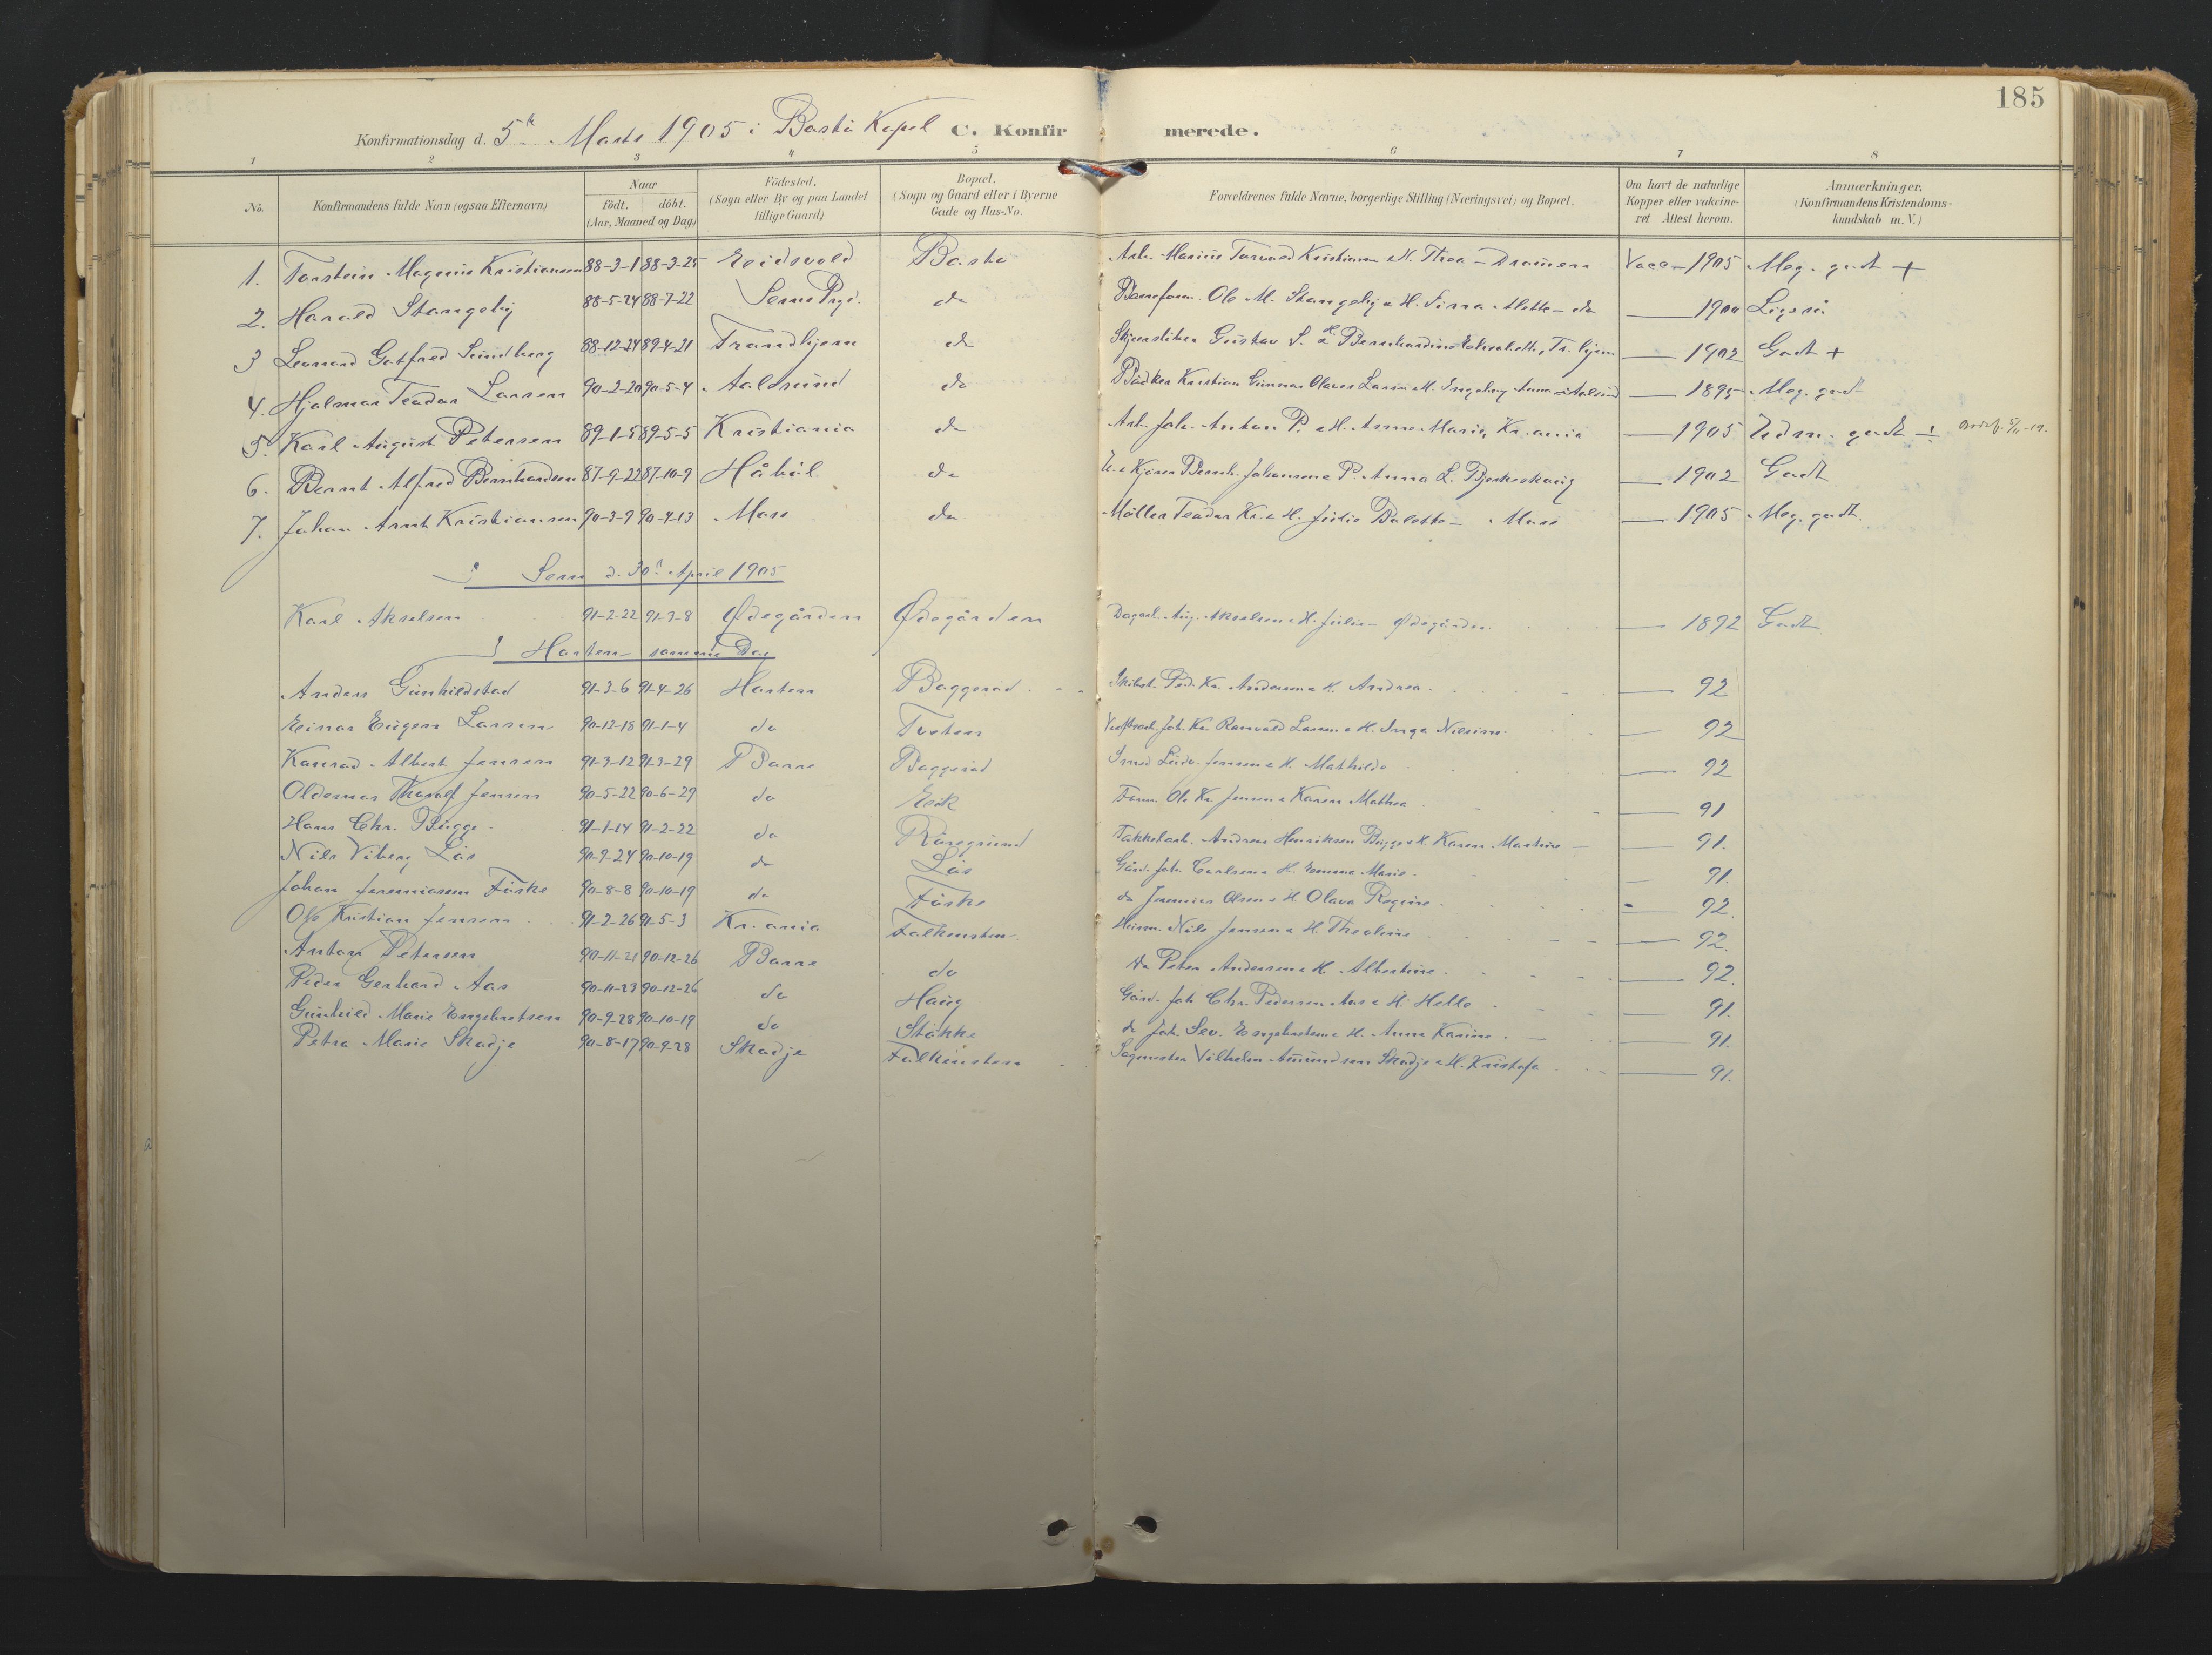 185
Konfirmationsdag d. 5te Marts 1905 i Bastö Kapel C. Konfirmerede.
1 2 3 4 5 6 7 8
No. Konfirmandens fulde Navn (ogsaa Efternavn) Naar födt. döbt. (Aar, Maaned og Dag) Födested. (Sogn eller By og paa Landet tillige Gaard) Bopæl. (Sogn og Gaard eller i Byerne Gade og Hus-No. Forældrenes fulde Navne, borgerlige Stilling (Næringsvei) og Bopæl. Om havt de naturlige Kopper eller vaccineret Attest herom. Anmærkninger. (Konfirmandens Kristendomskundskab m. V.)
1. Torstein Magnus Kristiansen 88-3-1 88-3-25 Eidsvold Bastö Arb. Marius Torvald Kristiansen & H. Thea - Drammen Vacc - 1905 Meg. godt +
2. Harald Stangeby 88-5-24 88-7-22 Sems Prgj. do Ole M. Stangeby & H. Sina Mette - do 1900 Ligeså
3 Leonard Gotfred Sundberg 88-12-24 89-4-21 Trondhjem do Skjærsliber Gustav S. & H. Bernhardine Elisabeth, Tr.hjem 1902 Godt +
4. Hjalmar Teodor Larsen 90-2-20 90-5-4 Aalesund do Bödker Kristian Gunnar Olaves Larsen & H. Ingeborg Anna - Aalesund 1895 Meg. godt
5. Karl August Petersen 89-1-5 89-5-5 Kristiania do Arb. Joh. Anton P. & H. Anne Marie, Kr.ania 1905 Udm. godt
6. Bernt Alfred Bernhardsen 87-9-22 87-10-9 Håböl do Bernh. Johansen & P. Anna L. Bjerkeskaug 1902 Godt
7. Johan Arnt Kristiansen 90-3-9 90-4-13 Moss do Möller Teodor Kr. & H. Julie Bolette - Moss 1905 Meg. godt.
i Sem d. 30te April 1905
Karl Akselsen 91-2-22 91-3-8 Ødegården Ødegården Dagarb. Aug. Akselsen & H. Julie - Ødegården 1892 Godt
i Horten samme Dag
Anders Gunhildstad 91-3-6 91-4-26 Horten Baggeröd Ped. Kr. Andersen & H. Andrea 92
Einar Eugen Larsen 90-12-18 91-1-4 do Tveten Joh. Kr. Ranvald Larsen & H. Inga Nilsine 92
Konrad Albert Jensen 91-3-12 91-3-29 Borre Baggeröd Smed Ludv. Jensen & H. Mathilde 92
Oldemar Thoralf Jensen 90-5-22 90-6-29 do Eök Form. Ole Kr. Jensen & Karen Mathea 91
Hans Chr. Bugge 91-1-14 91-2-22 do Röregrund Takkelarb. Andreas Henriksen Bugge & H. Karen Martine 91.
Nils Viberg Lös 90-9-24 90-10-19 do Lös Gård. Joh. Carlsen & H. Emma Marie 91.
Johan Jeremiasen Föske 90-8-8 90-10-19 do Föske do Jeremias Olsen & H. Olava Regine 92.
Ole Kristian Jensen 91-2-26 91-5-3 Kr.ania Falkensten Nils Jensen & H. Theoline 92.
Anton Petersen 90-11-21 90-12-26 Borre do do Peter Andersen & H. Albertine 92.
Peder Gerhard Aas 90-11-23 90-12-26 do Haug Gård. Joh. Chr. Pedersen Aas & H. Helle 91.
Gunhild Marie Engebretsen 90-9-28 90-10-19 do Stökke do Joh. Sev. Engebretsen & H. Anne Karine 91.
Petra Marie Skadje 90-8-17 90-9-28 Skadje Falkensten Sagmester Vilhelm Amundsen Skadje & H. Kristofa 91.